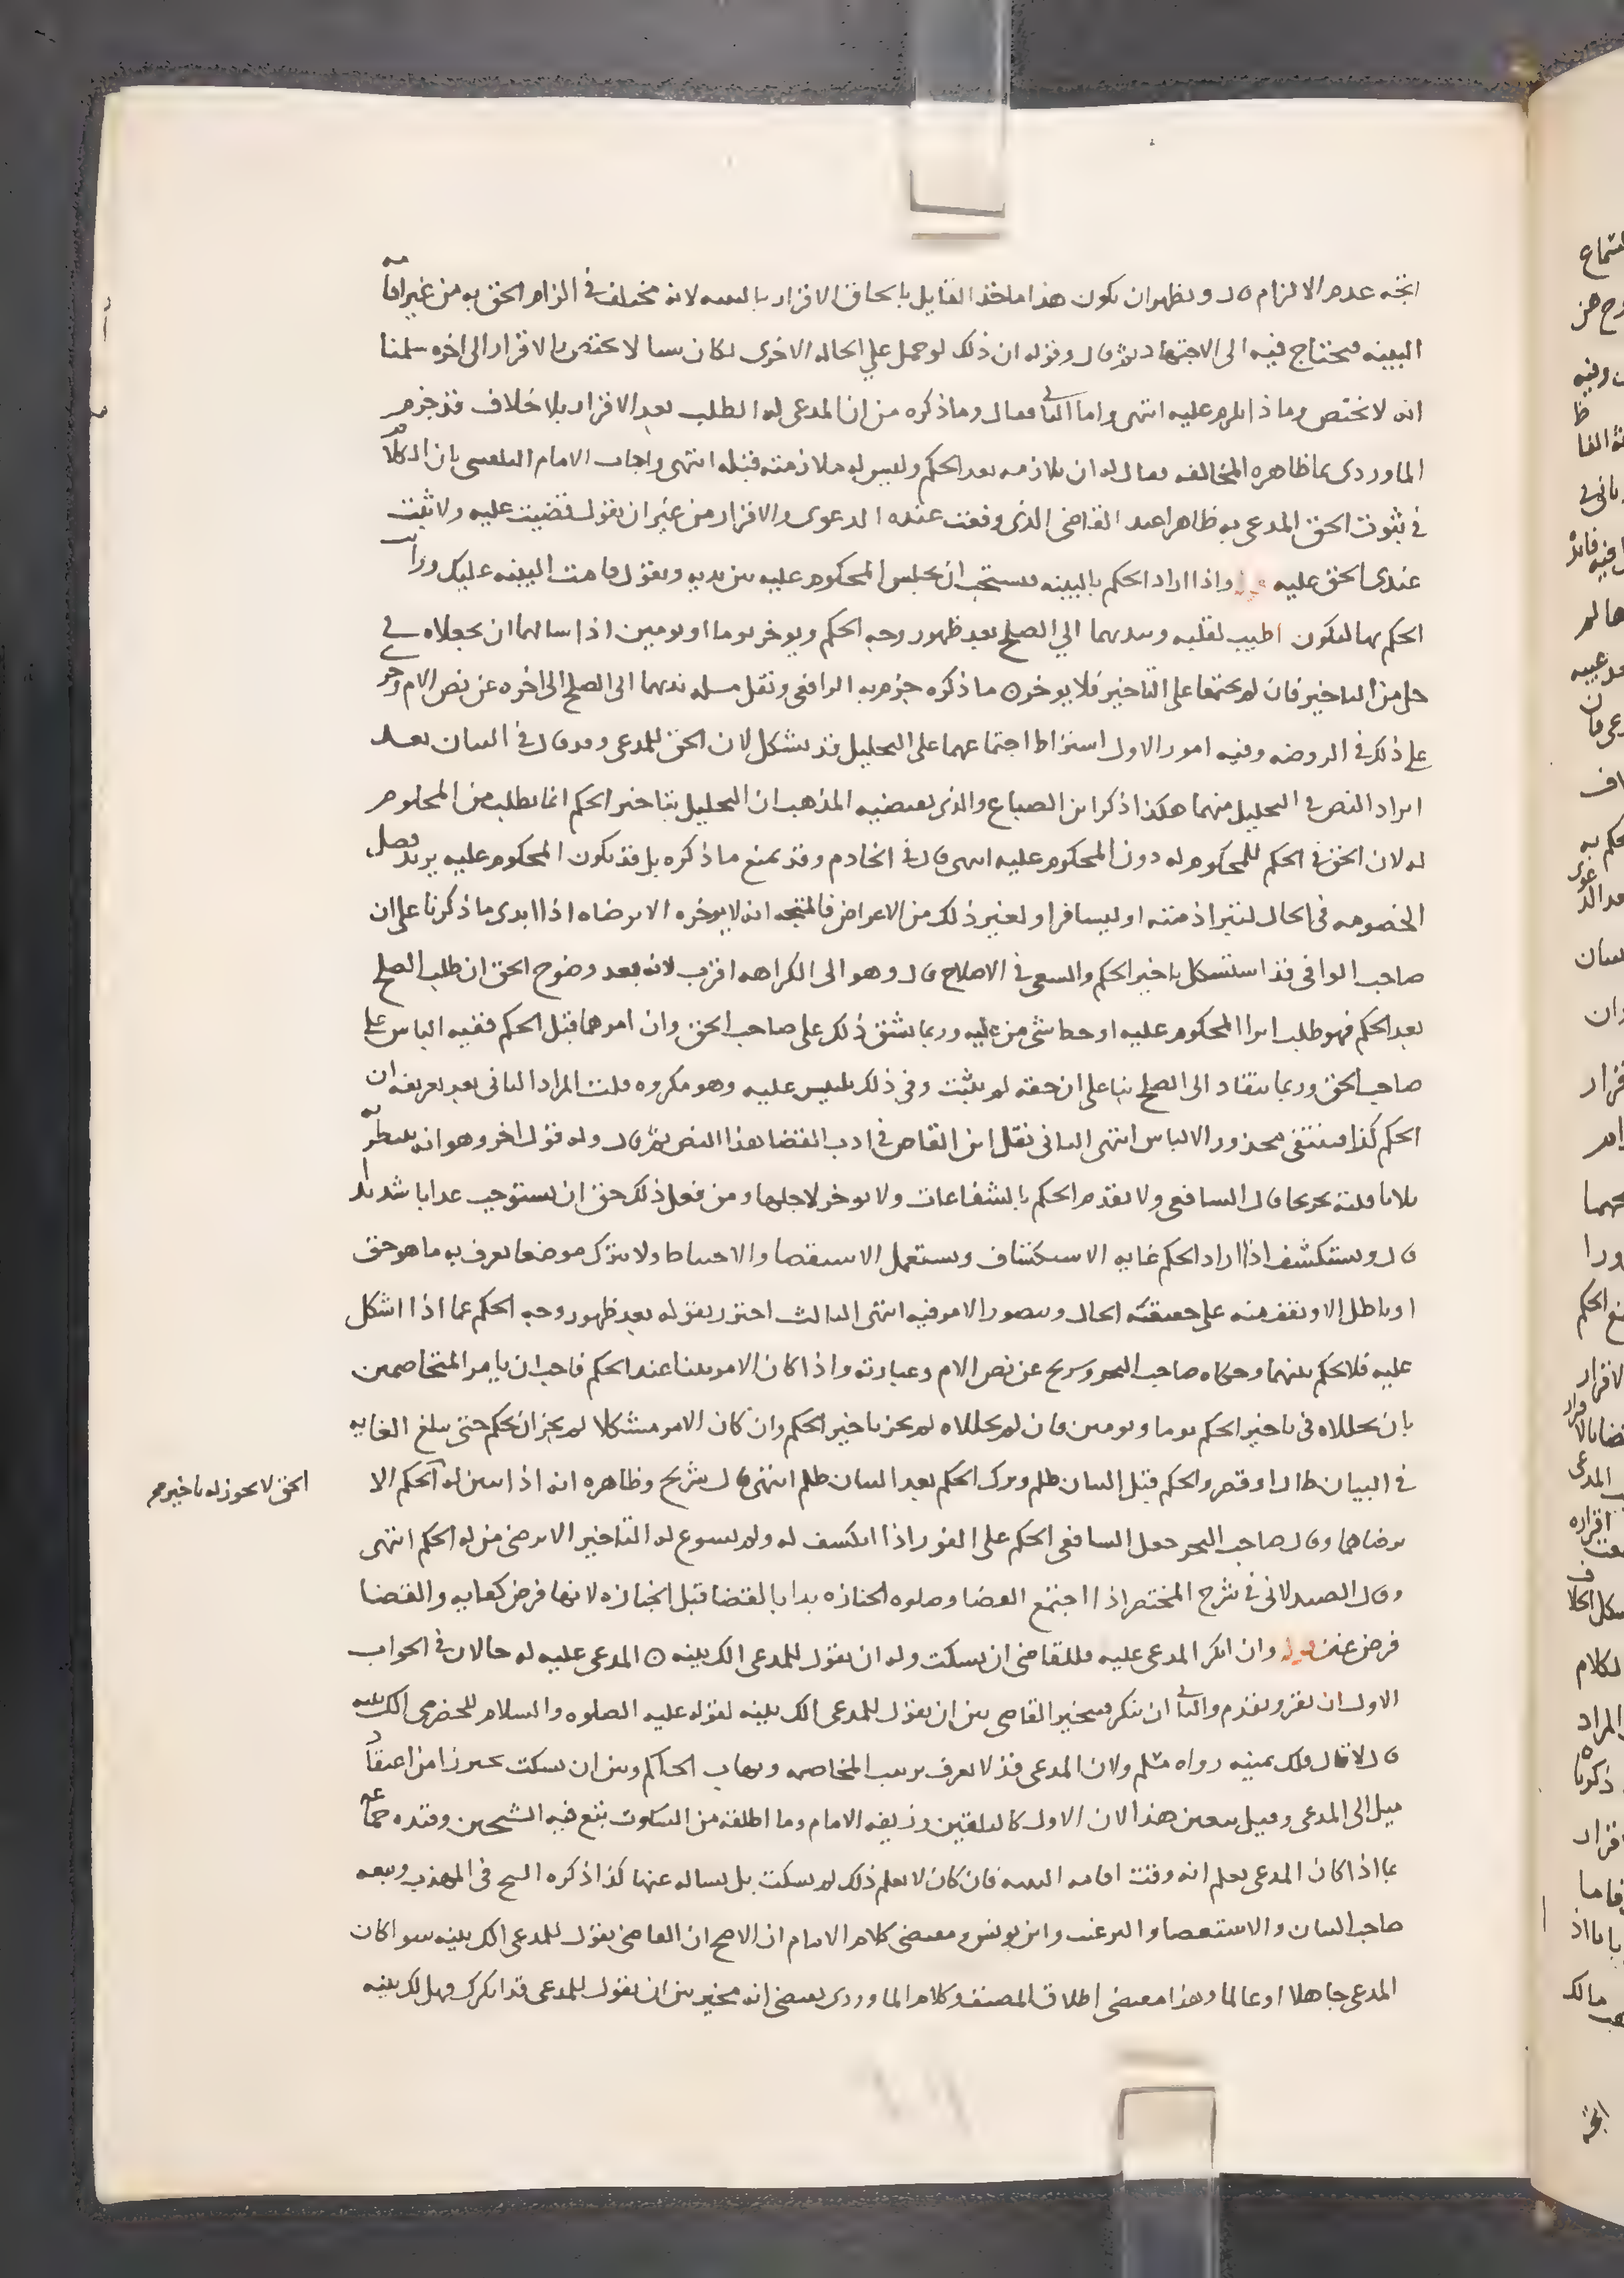 اتجه عدم الالزام قال ويظهر ان يكون هذا ماخذ القايل بالحاق الاقرار بالبينه لانه مختلف في الزام الحق به من غير اقامة
البينه فيحتاج فيه الى الاجتهاد ثم قال وقوله ان ذلك لو حمل علي الحاله الاخرى لكان بينا لا يختص بالاقرار الى اخره سلمنا
انه لا يختص وما ذا يلزم عليه انتهى واما الثاني فقال وما ذكره من ان المدعى له الطلب بعد الاقرار بلا خلاف قد جزم
الماوردى بما ظاهره المخالفه فقال له ان يلازمه بعد الحكم وليس له ملازمته قبله انتهى واجاب الامام البلقينى بان الكلام
في ثبوت الحق المدعى به ظاهرا عند القاضى الذى وقعت عنده الدعوى والاقرار من غير ان يقول قضيت عليه ولا ثبت
عندى الحق عليه قال واذا اراد الحكم بالبينه فيستحب ان يجلس المحكوم عليه بين يديه ويقول قامت البينه عليك ورايت
الحكم بها ليكون اطيب لقلبه ويندبهما الي الصلح بعد ظهور وجه الحكم ويوخر يوما او يومين اذا سالهما ان يجعلاه في
حل من التاخير فان لم يجتمعا على التاخير فلا يوخر ما ذكره جزم به الرافعى ونقل مسله ندبهما الى الصلح الى اخره عن نص الام وجرى
على ذلك في الروضه وفيه امور الاول اشتراط اجتماعهما على التحليل قد يشكل لان الحق للمدعى وقد قال في البيان بعد
ايراد النص في التحليل منهما هكذا ذكر ابن الصباغ والذى يقتضيه المذهب ان التحليل بتاخير الحكم انما يطلب من المحكوم
له لان الحق في الحكم للمحكوم له دون المحكوم عليه انتهى قال في الخادم وقد يمنع ما ذكره بل قد يكون المحكوم عليه يريد فصل
الخصومه في الحال لتبرا ذمته او ليسافر او لغير ذلك من الاعراض فالمتجه انه لا يوخره الا برضاه اذا ابدى ما ذكرنا على ان
صاحب الوافى قد استشكل تاخير الحكم والسعى في الاصلاح قال وهو الى الكراهه اقرب لانه بعد وضوح الحق ان طلب الصلح
بعد الحكم فهو طلب ابرا المحكوم عليه او حط شى من عليه وربما يشق ذلك على صاحب الحق وان امرهما قبل الحكم ففيه الباس على
صاحب الحق وربما ينقاد الى الصلح بنا على ان حقه لم يثبت وفي ذلك تلبيس عليه وهو مكروه قلت المراد الثانى بعد تعريفه ان
الحكم كذا فينتفى محذور الالباس انتهى الثانى نقل ابن القاص في ادب القضا هذا النص ثم قال وله قول اخر وهو انه ينتظر به
ثلاثا قلته تخريجا قال الشافعى ولا يقدم الحكم بالشفاعات ولا يوخر لاجلها ومن فعل ذلك حق ان يستوجب عذابا شديدا
قال ويستكشف اذا اراد الحكم غايه الاستكشاف ويستعمل الاستقصا والاحتياط ولا يترك موضعا يعرف به ما هو حق
او باطل الا ويقف منه على حقيقة الحال ويتصور الامر فيه انتهى الثالث احترز بقوله بعد ظهور وجه الحكم عما اذا اشكل
عليه فلا يحكم بينهما وحكاه صاحب البحر وسريج عن نص الام وعبارته واذا كان الامر بينا عند الحكم فاحب ان يامر المتخاصمين
بان يحللاه في تاخير الحكم يوما ويومين فان لم يحللاه لم يجز تاخير الحكم وان كان الامر مشكلا لم يجز ان يحكم حتى يبلغ الغايه
في البيان طال او قصر والحكم قبل البيان ظلم وترك الحكم بعد البيان ظلم انتهى قال شريح وظاهره انه اذا تبين له الحكم الا
الحق لا يجوز له تاخير صح
برضاهما وقال صاحب البحر جعل الشافعى الحكم على الفور اذا انكشف له ولم يسوغ له التاخير الا برضى من له الحكم انتهى
وقال الصيدلانى في شرح المختصر اذا اجتمع القضا وصلوه الجنازه بدا بالقضا قبل الجنازه لانها فرض كفايه والقضا
فرض عين قوله وان انكر المدعى عليه فللقاضى ان يسكت وله ان يقول للمدعى الك بينه ٥ المدعى عليه له حالان في الجواب
الاول ان يقر ويقدم والثاني ان ينكر فيتخير القاضى بين ان يقول للمدعى الك بينه لقوله عليه الصلوه والسلام للحضرمى الك بينه
قال لا قال فلك يمينه رواه مسلم ولان المدعى قد لا يعرف ترتيب المخاصمه ويهاب الحاكم وبين ان يسكت تحرزا من اعتقاد
ميل الى المدعى وقيل يتعين هذا لان الاول كالتلقين وزيفه الامام وما اطلقه من السكوت تبع فيه الشيخين وقيده جماعة
بما اذا كان المدعى يعلم انه وقت اقامه البينه فان كان لا يعلم ذلك لم يسكت بل يساله عنها كذا ذكره الشيخ في المهذب وتبعه
صاحب البيان والاستقصا والمرغب وابن يونس ومقتضى كلام الامام ان الاصح ان القاضى يقول للمدعى الك بينه سوا كان
المدعى جاهلا او عالما وهذا مقتضى اطلاق المصنف وكلام الماوردى يقتضى انه مخير بين ان يقول للمدعى قد انكرك فهل لك بينه